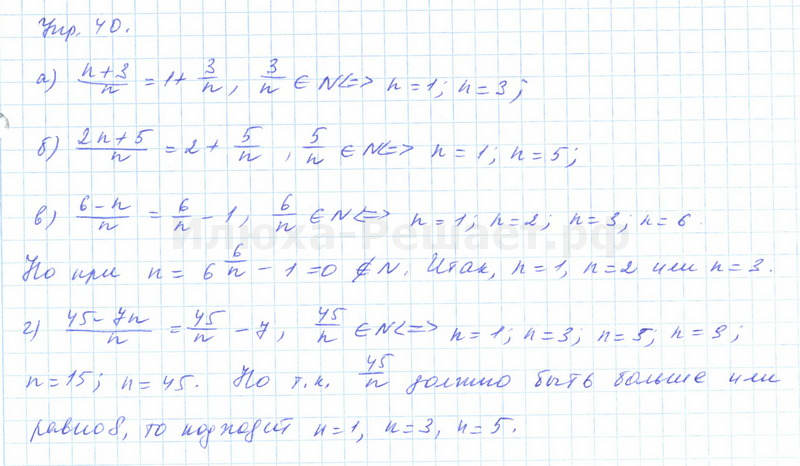 Упр. 40.
а) (n+3)/n = 1 + 3/n, 3/n ∈ N <=> n = 1; n = 3;
б) (2n+5)/n = 2 + 5/n, 5/n ∈ N <=> n = 1; n = 5;
в) (6-n)/n = 6/n - 1, 6/n ∈ N <=> n = 1; n = 2; n = 3; n = 6.
Илюха-Решает.рф
Но при n = 6 6/n - 1 = 0 ∉ N. Итак, n = 1, n = 2 или n = 3.
г) (45-7n)/n = 45/n - 7, 45/n ∈ N <=> n = 1; n = 3; n = 5; n = 9;
n = 15; n = 45. Но т.к. 45/n должно быть больше или
равно 8, то подходит n = 1, n = 3, n = 5.